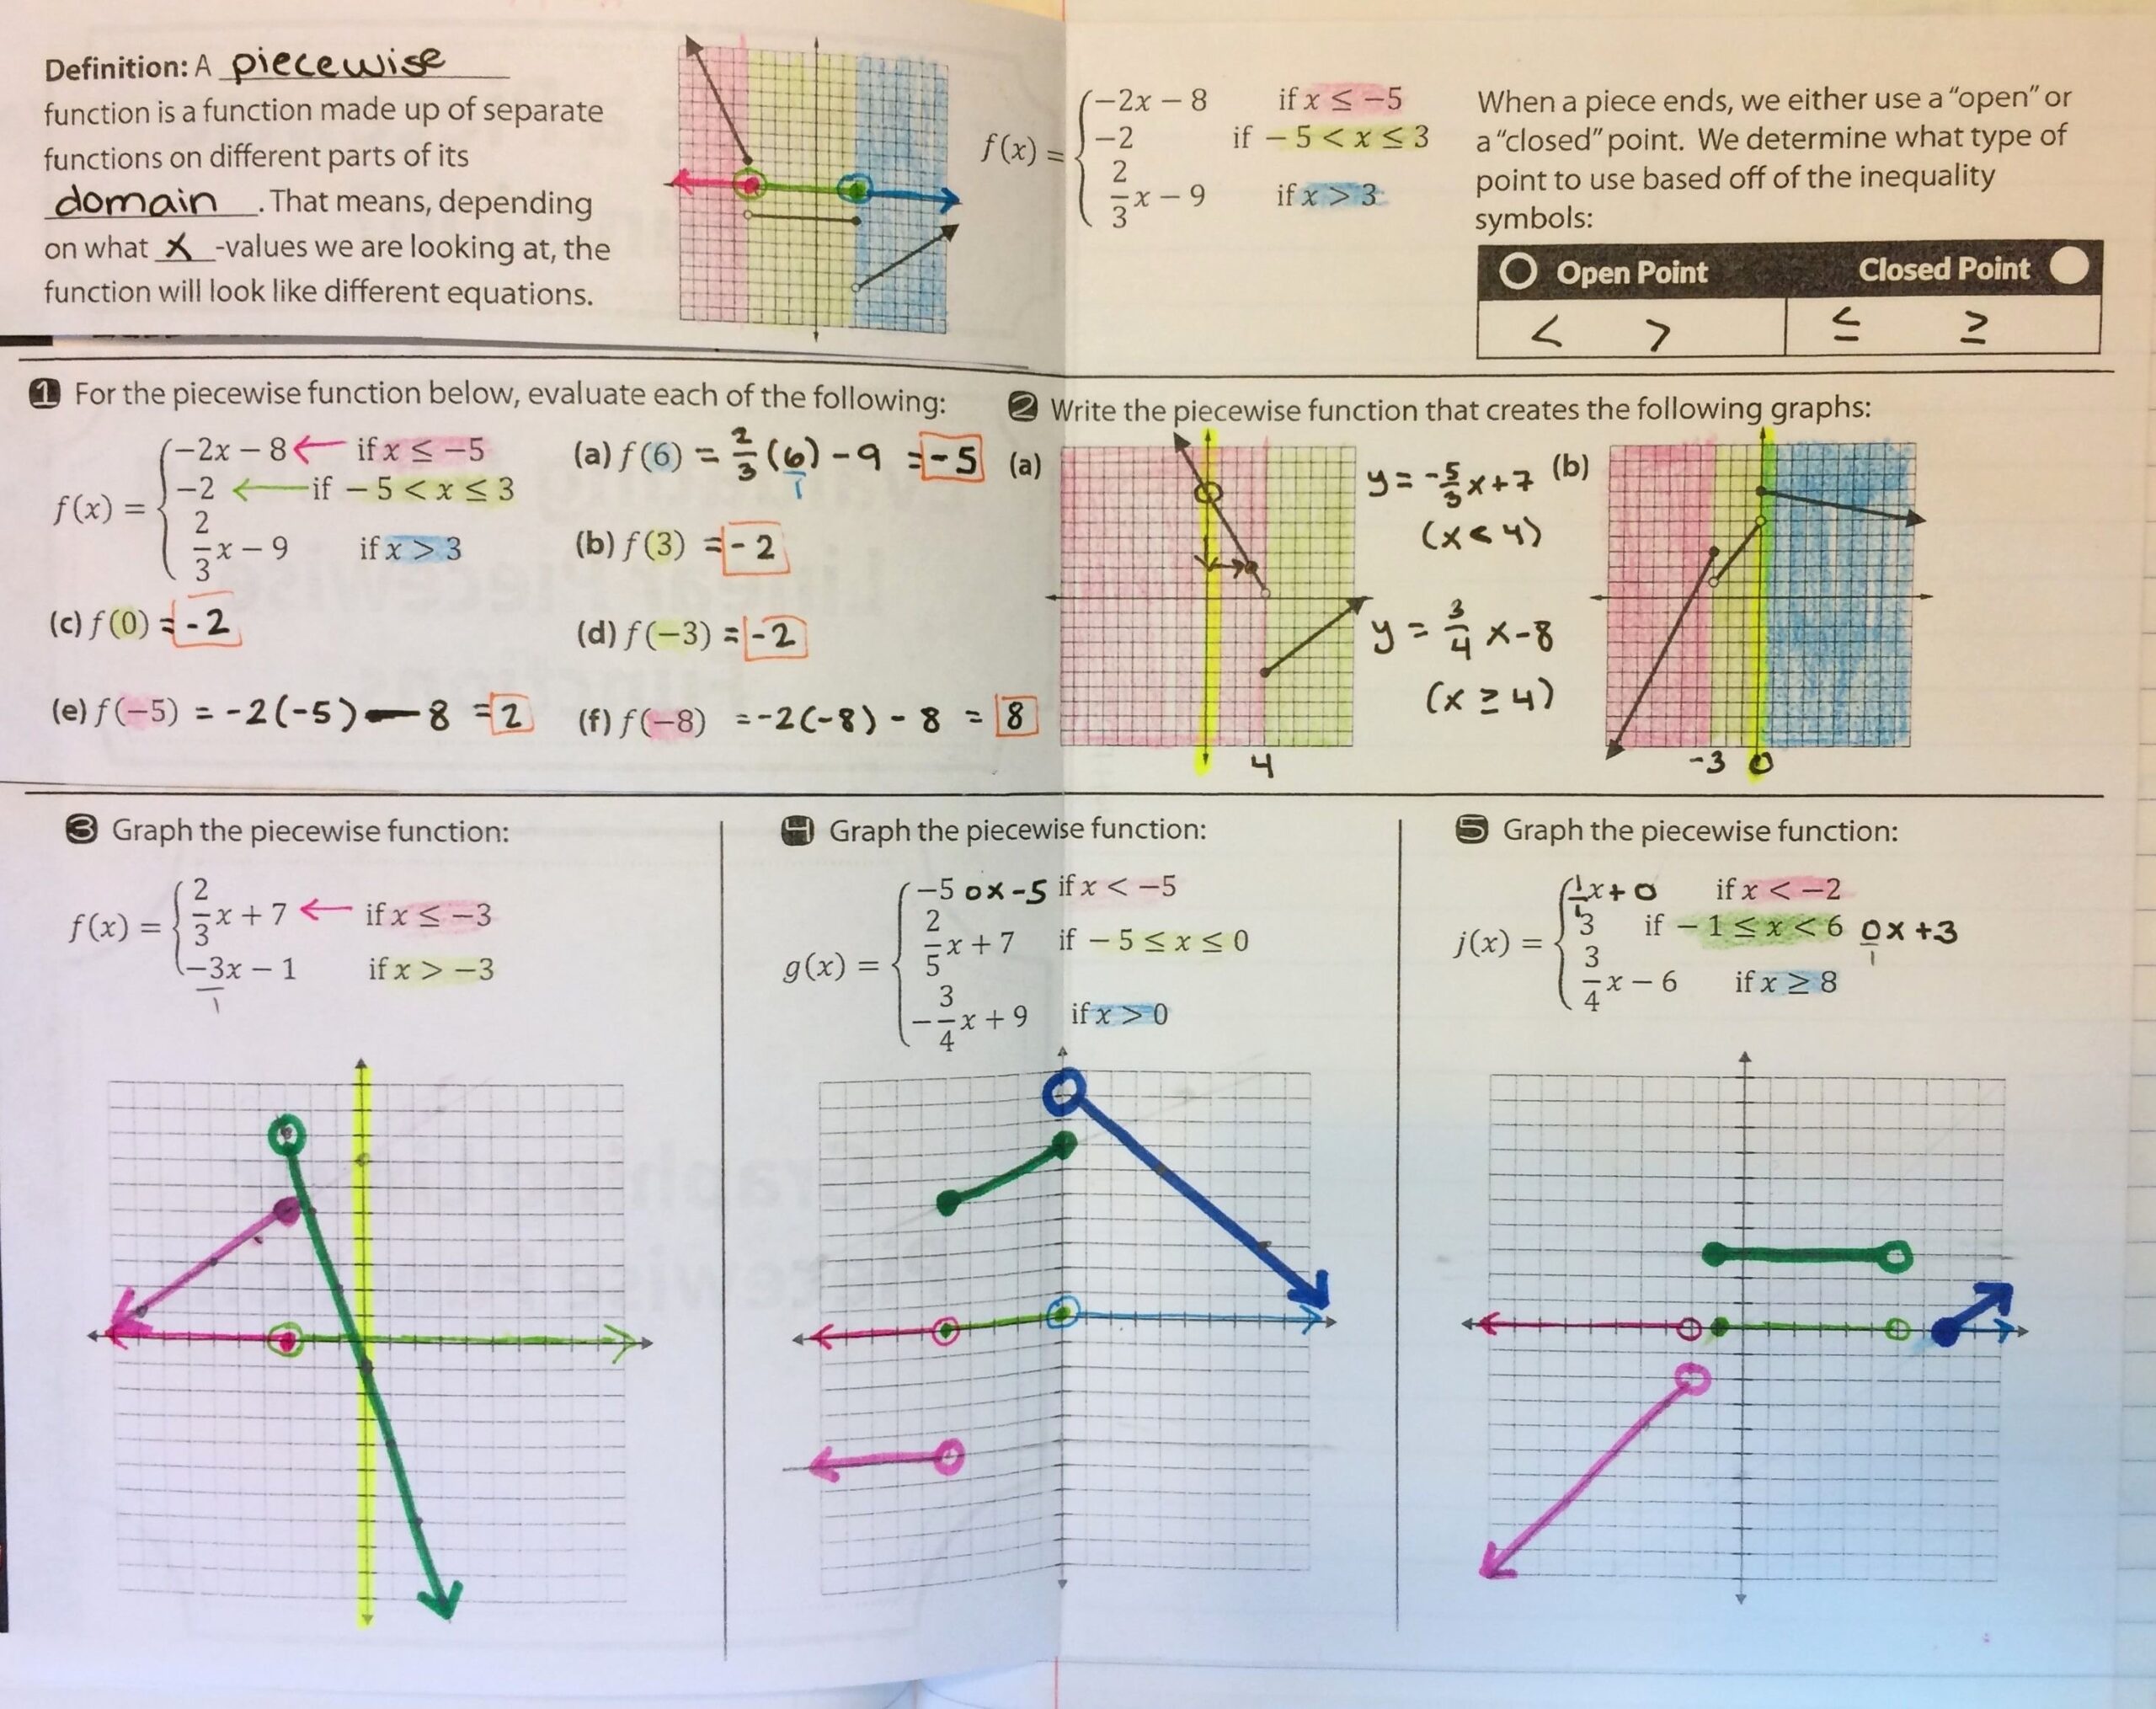 Definition: A piecewise
function is a function made up of separate
functions on different parts of its
domain. That means, depending
on what x -values we are looking at, the
function will look like different equations.
f(x) = { −2x − 8 if x ≤ −5
−2 if − 5 < x ≤ 3
2/3 x − 9 if x > 3
When a piece ends, we either use a “open” or
a “closed” point. We determine what type of
point to use based off of the inequality
symbols:
Open Point Closed Point
< > ≤ ≥
1 For the piecewise function below, evaluate each of the following:
f(x) = { −2x − 8 if x ≤ −5
−2 if − 5 < x ≤ 3
2/3 x − 9 if x > 3
(a) f(6) = 2/3 (6) - 9 = -5
1
(b) f(3) = -2
(c) f(0) = -2
(d) f(−3) = -2
(e) f(−5) = -2(-5) - 8 = 2
(f) f(−8) = -2(-8) - 8 = 8
2 Write the piecewise function that creates the following graphs:
(a)
y = -5/3 x + 7
(x < 4)
y = 3/4 x - 8
(x ≥ 4)
4
(b)
-3 0
3 Graph the piecewise function:
f(x) = { 2/3 x + 7 if x ≤ −3
−3x − 1 if x > −3
1
4 Graph the piecewise function:
g(x) = { −5 0x-5 if x < −5
2/5 x + 7 if − 5 ≤ x ≤ 0
−3/4 x + 9 if x > 0
5 Graph the piecewise function:
j(x) = { 1/1 x + 0 if x < −2
3 if − 1 ≤ x < 6 0/1 x + 3
3/4 x − 6 if x ≥ 8